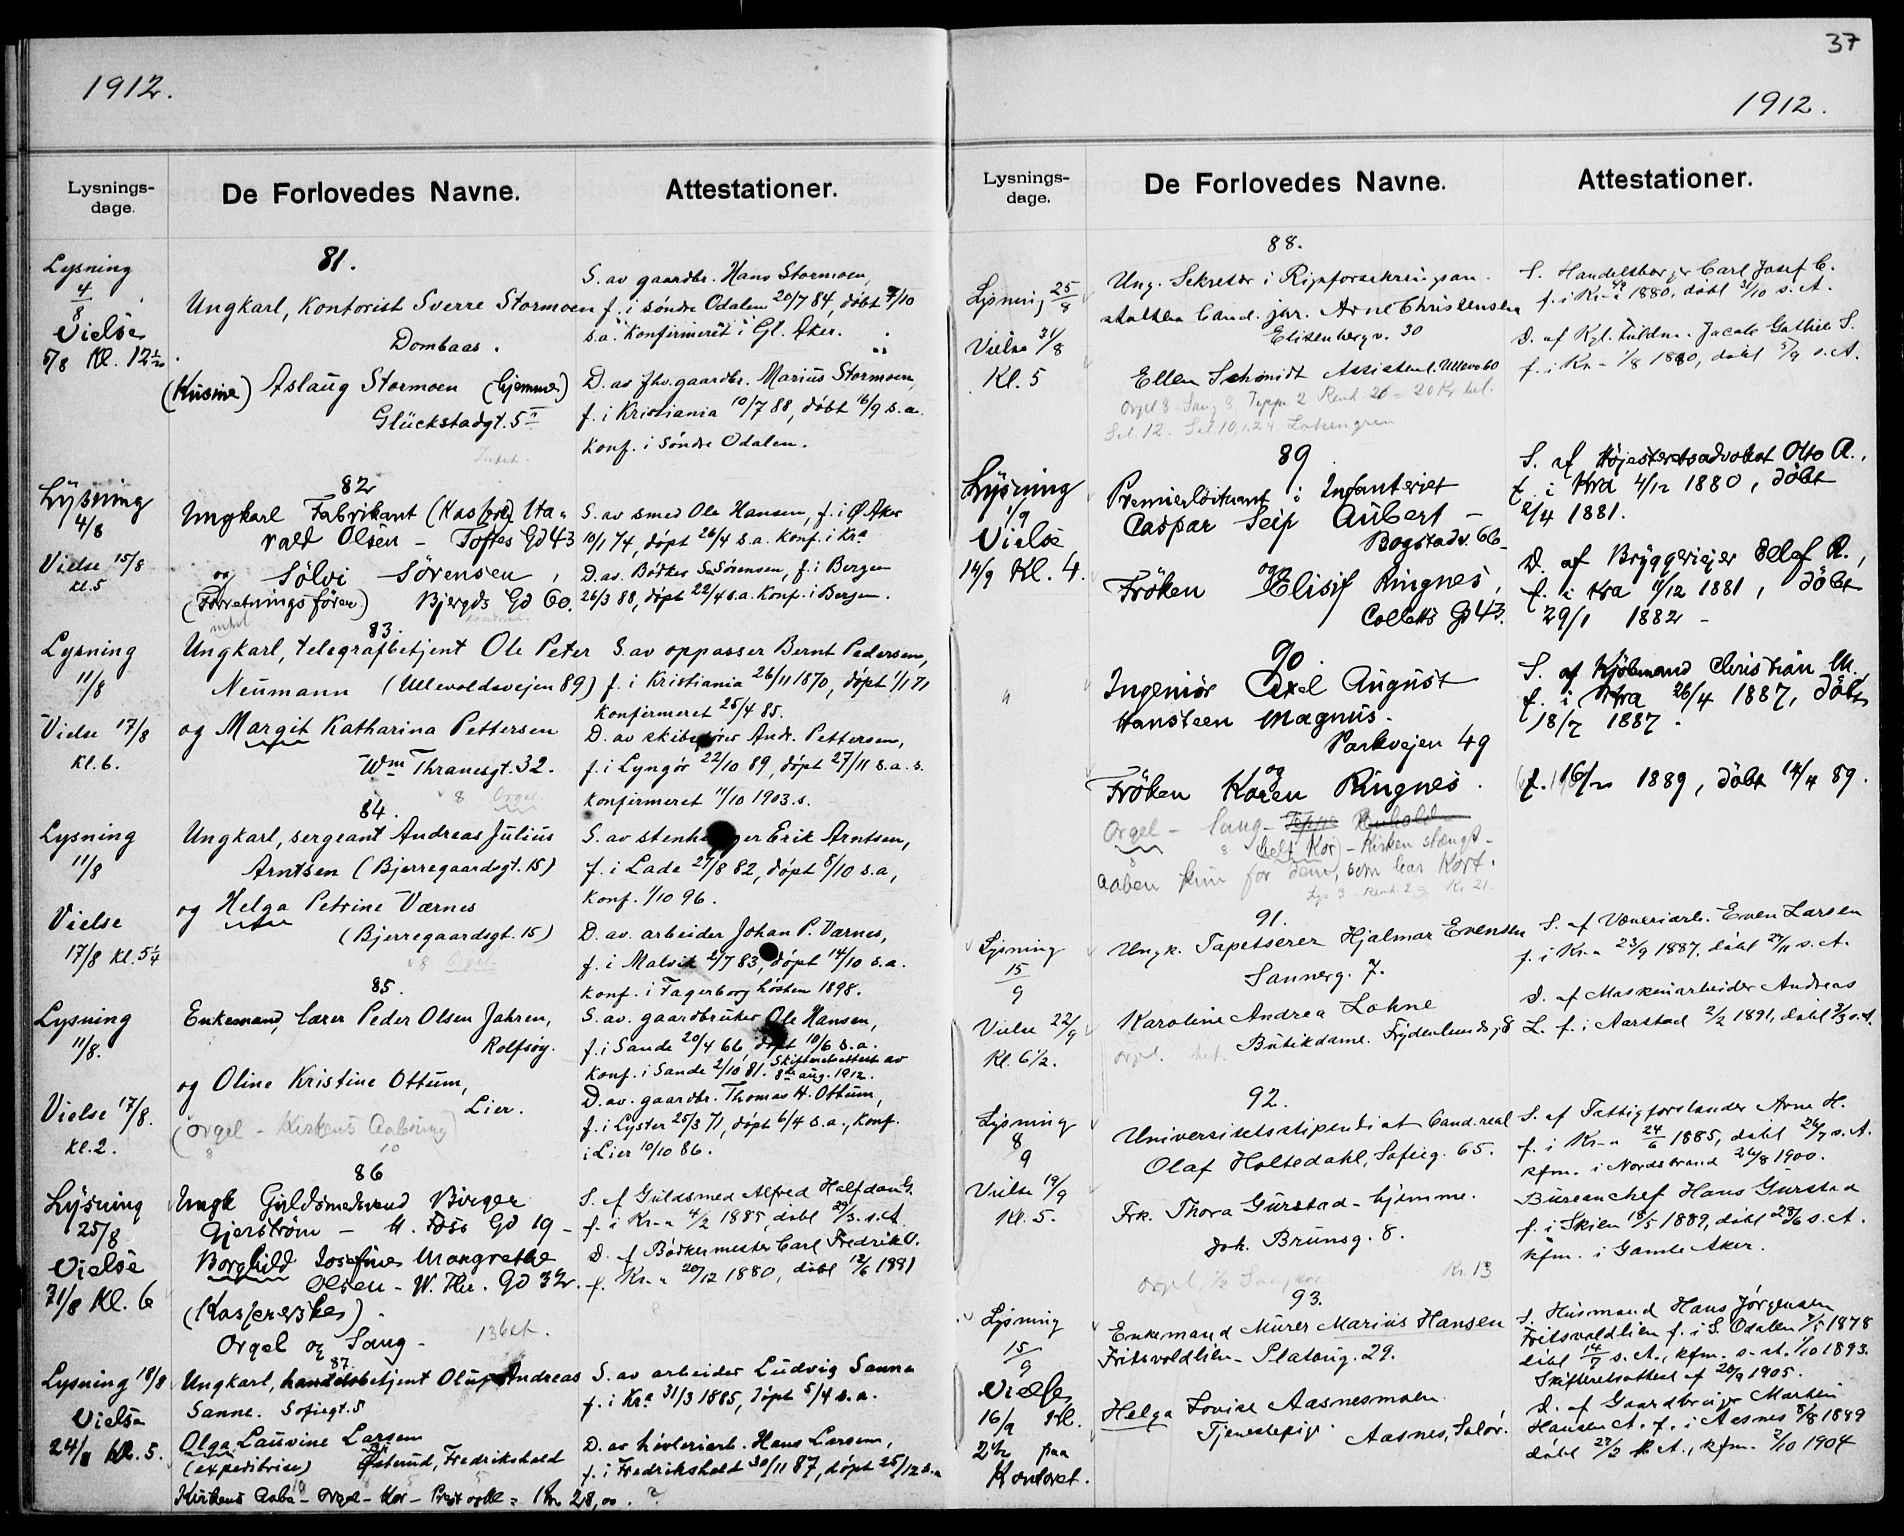 1912.
Lysnings-
dage.
De Forlovedes Navne.
Attestationer.
Lysning
4/8
Vielse
5/8 Kl. 12½
81.
Ungkarl, Kontorist Sverre Stormoen
Dombaas.
(Kusine) Aslaug Stormoen (hjemme)
Glückstadgt. 5 I
S. av gaardbr. Hans Stormoen,
f. i Söndre Odalen 20/7 84, döbt 7/10
s.a. Konfirmeret i Gl. Aker.
D. av fhv. gaardbr. Marius Stormoen,
f. i Kristiania 10/7 88, döbt 16/9 s.a.
Konf. i Söndre Odalen.
Lysning
4/8
Vielse 15/8
kl. 5
82
Ungkarl Fabrikant
vald Olsen - Toftes Gd 43
og Sölvi Sörensen,
(Forretningsförer) Bjergds Gd 60.
S. av smed Ole Hansen, f. i Ø. Aker
10/1 74, döpt 26/4 s.a. Konf. i Kra
D. av. Bödker S. Sörensen, f. i Bergen
26/3 88, döpt 22/4 s.a. Konf. i Bergen.
Lysning
11/8
Vielse 17/8
kl. 6.
83.
Ungkarl, telegrafbetjent Ole Peter
Neumann (Ullevoldsvejen 89)
og Margit Katharina Pettersen
Wm Thranesgt. 32.
8 Orgel
S. av oppasser Bernt Pedersen,
f. i Kristiania 26/11 1870, döpt 1/1 71
Konfirmeret 25/4 85.
D. av Andr. Pettersen,
f. i Lyngör 22/10 89, döpt 27/11 s.a. s.
Konfirmeret 11/10 1903. s.
Lysning
11/8
Vielse
17/8 kl. 5¼
84.
Ungkarl, sergeant Andreas Julius
Arntsen (Bjerregaardsgt. 15)
og Helga Petrine Værnes
(Bjerregaardsgt. 15)
8 Orgel
S. av Erik Arntsen,
f. i Lade 27/8 82, döpt 8/10 s.a,
Konf. 1/10 96.
D. av. arbeider Johan P. Værnes,
f. i Malvik 2/7 83, döpt 14/10 s.a.
Konf. i Fagerborg hösten 1898.
Lysning
11/8.
Vielse 17/8.
kl. 2.
85.
Enkemand, lærer Peder Olsen Jahren,
Rolfsöy.
og Oline Kristine Ottum,
Lier.
(orgel - Kirkens Aabning)
8 10
S. av. gaardbruker Ole Hansen,
f. i Sande 20/4 66, döpt 10/6 s.a.
Konf. i Sande 2/10 81. Skifteretsattest av
8de aug. 1912.
D. av. gaardbr. Thomas H. Ottum,
f. i Lyster 25/3 71, döpt 6/4 s.a., Konf.
i Lier 10/10 86.
Lysning
25/8
Vielse
31/8 Kl. 6
86
Ungk Guldsmedsvend Birger
Gjerström - M. Foss Gd 19 -
Borghild Josefine Margrethe
Olsen - W. Thr. Gd 32.
(Kassererske)
Orgel og Sang -
S. af Guldsmed Alfred Halfdan G.
f. i Kr-a 4/2 1885, döbt 29/3 s.A.
D. af Bödkermester Carl Fredrik O.
f. Kr-a 20/12 1880, döbt 12/6 1881
Lysning 18/8
Vielse
24/8 kl. 5.
87.
Ungkarl, handelsbetjent Oluf Andreas
Sanne. Sofiegt. 5
Olga Lauvine Larsen
(expeditrise) Österud, Fredrikshald
Kirkens Aabn - Orgel - Kor - = Kr 28,00. ?
S. av arbeider Ludvig Sanne
f. i Kra 31/3 1885, döpt 5/4 s.a.
D. av hövleriarb. Hans Larsen,
f. i Fredrikshald 30/11 87, döpt 25/12 s.a
37
1912.
Lysnings-
dage.
De Forlovedes Navne.
Attestationer.
Lysning 25/8
Vielse 31/8
Kl. 5
88.
Ung. Sekretær i Rigsforsekringsan-
stalten Cand. jur. Arne Christensen
Elisenbergv. 30
Ellen Schmidt Assistent. Ullevv 60
Orgel 8 Sang 8 Teppe 2 Renh. 2 = 20 Kr bet.
S. Handelsborger Carl Josef C.
f. i Kr-a 1880, döbt 31/10 s.A.
D. af Kgl. Fuldm. Jacob Gothie S.
f. i Kr-a 1/8 1880, döbt 5/9 s.A.
Lysning
1/9
Vielse
14/9 Kl. 4.
89
Premierlöitnant i Infanteriet
Caspar Seip Aubert -
Bogstadv. 66 -
og
Fröken Elisif Ringnes,
Colletts Gd 43.
S. af Höjesteretsadvokat Otto A.,
f. i Kra 4/12 1880, döbt
2/4 1881.
D. af Bryggeriejer Ellef R.,
f. i Kra 11/12 1881, döbt
29/1 1882 -
"
90.
Ingeniör Axel August
Hansteen Magnus.
Parkvejen 49
og
Fröken Karen Ringnes.
Orgel - Sang - Teppe Renhold
8 8 (helt Kor) - Kirken stængt -
aaben kun for dem, som har Kort.
Lys 3 Renh 2 = Kr 21.
S. af Kjöbmand Christian M.
f. i Kra 26/4 1887, döbt
18/7 1887.
f. 16/2 1889, döbt 14/4 89.
Lysning
15/9
Vielse 22/9
Kl. 6½.
91.
Ungk. Tapetserer Hjalmar Evensen
Sannerg. 7.
Karoline Andrea Lohne
Butikdame. Frydenlundsg 8
orgel. bet.
S. af Væveriarb. Even Larsen
f. i Kr-a 23/9 1887, döbt 27/11 s.A.
D. af Maskinarbeider Andreas
L. f. i Aarstad 2/2 1891, döbt 3/3 s.A.
Lysning
8/9
Vielse 19/9
Kl. 5.
92.
Universitetsstipendiat Cand. real
Olaf Holtedahl, Sofieg. 65.
Frk. Thora Gurstad - hjemme.
Joh. Brunsg. 8.
Orgel, ½ Sangkor Kr. 13
S. af Fattigforstander Arne H.
f. i Kr-a 24/6 1885, döbt 26/7 s.A.
kfm. i Nordstrand 26/8 1900.
Bureauchef Hans Gurstad
f. i Skien 18/5 1889, döbt 28/6 s.A.
kfm. i Gamle Aker.
Lysning
15/9
Vielse
16/9 Kl.
2½ paa
Kontoret.
93.
Enkemand Murer Marius Hansen
Fritsvoldlien - Platoug. 29.
Helga Lovise Aasnesmoen
Tjenestepige Aasnes, Solör.
S. Husmand Hans Jörgensen
Fritsvoldlien f. i S. Odalen 9/5 1878
döbt 14/7 s.A., kfm. s. st. 1/10 1893.
Skifteretsattest af 20/9 1905.
D. af Gaardbruger Martin
Hansen A. f. i Aasnes 8/8 1889
döbt 22/2 A., kfm. 2/10 1904